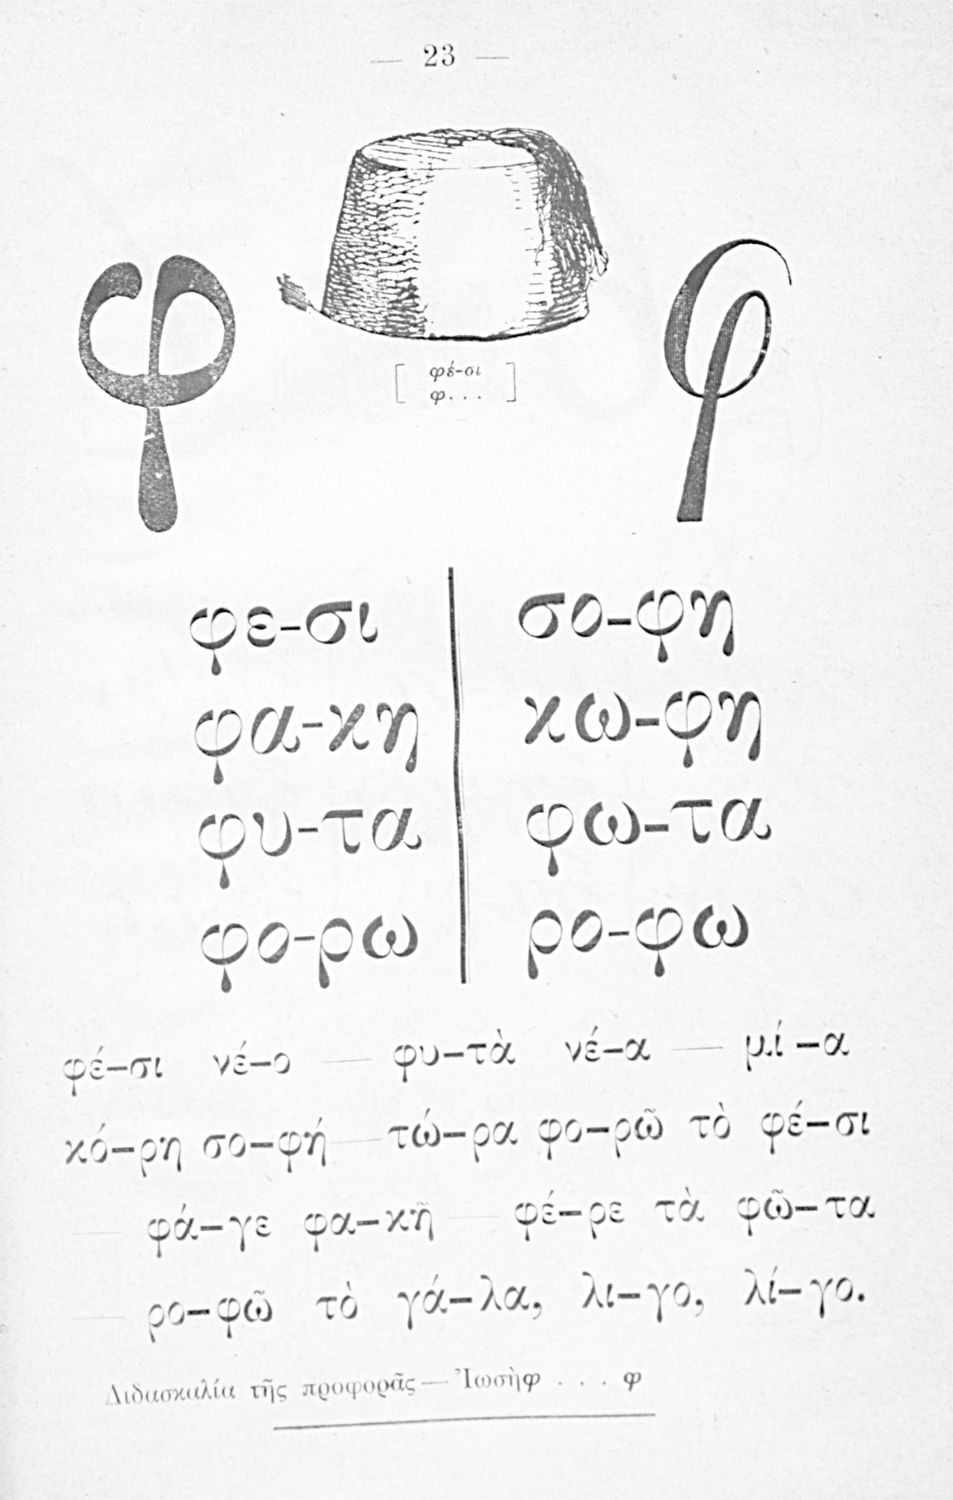 — 23 —
φ φ
φέ-σι
φ. . .
φε-σι σο-φη
φα-κη κω-φη
φυ-τα φω-τα
φο-ρω ρο-φω
φέ-σι νέ-ο — φυ-τὰ νέ-α — μί-α
κό-ρη σο-φή — τώ-ρα φο-ρῶ τὸ φέ-σι
— φά-γε φα-κῆ — φέ-ρε τὰ φῶ-τα
— ρο-φῶ τὸ γά-λα, λι-γο, λί-γο.
Διδασκαλία τῆς προφορᾶς — Ἰωσὴφ . . . φ